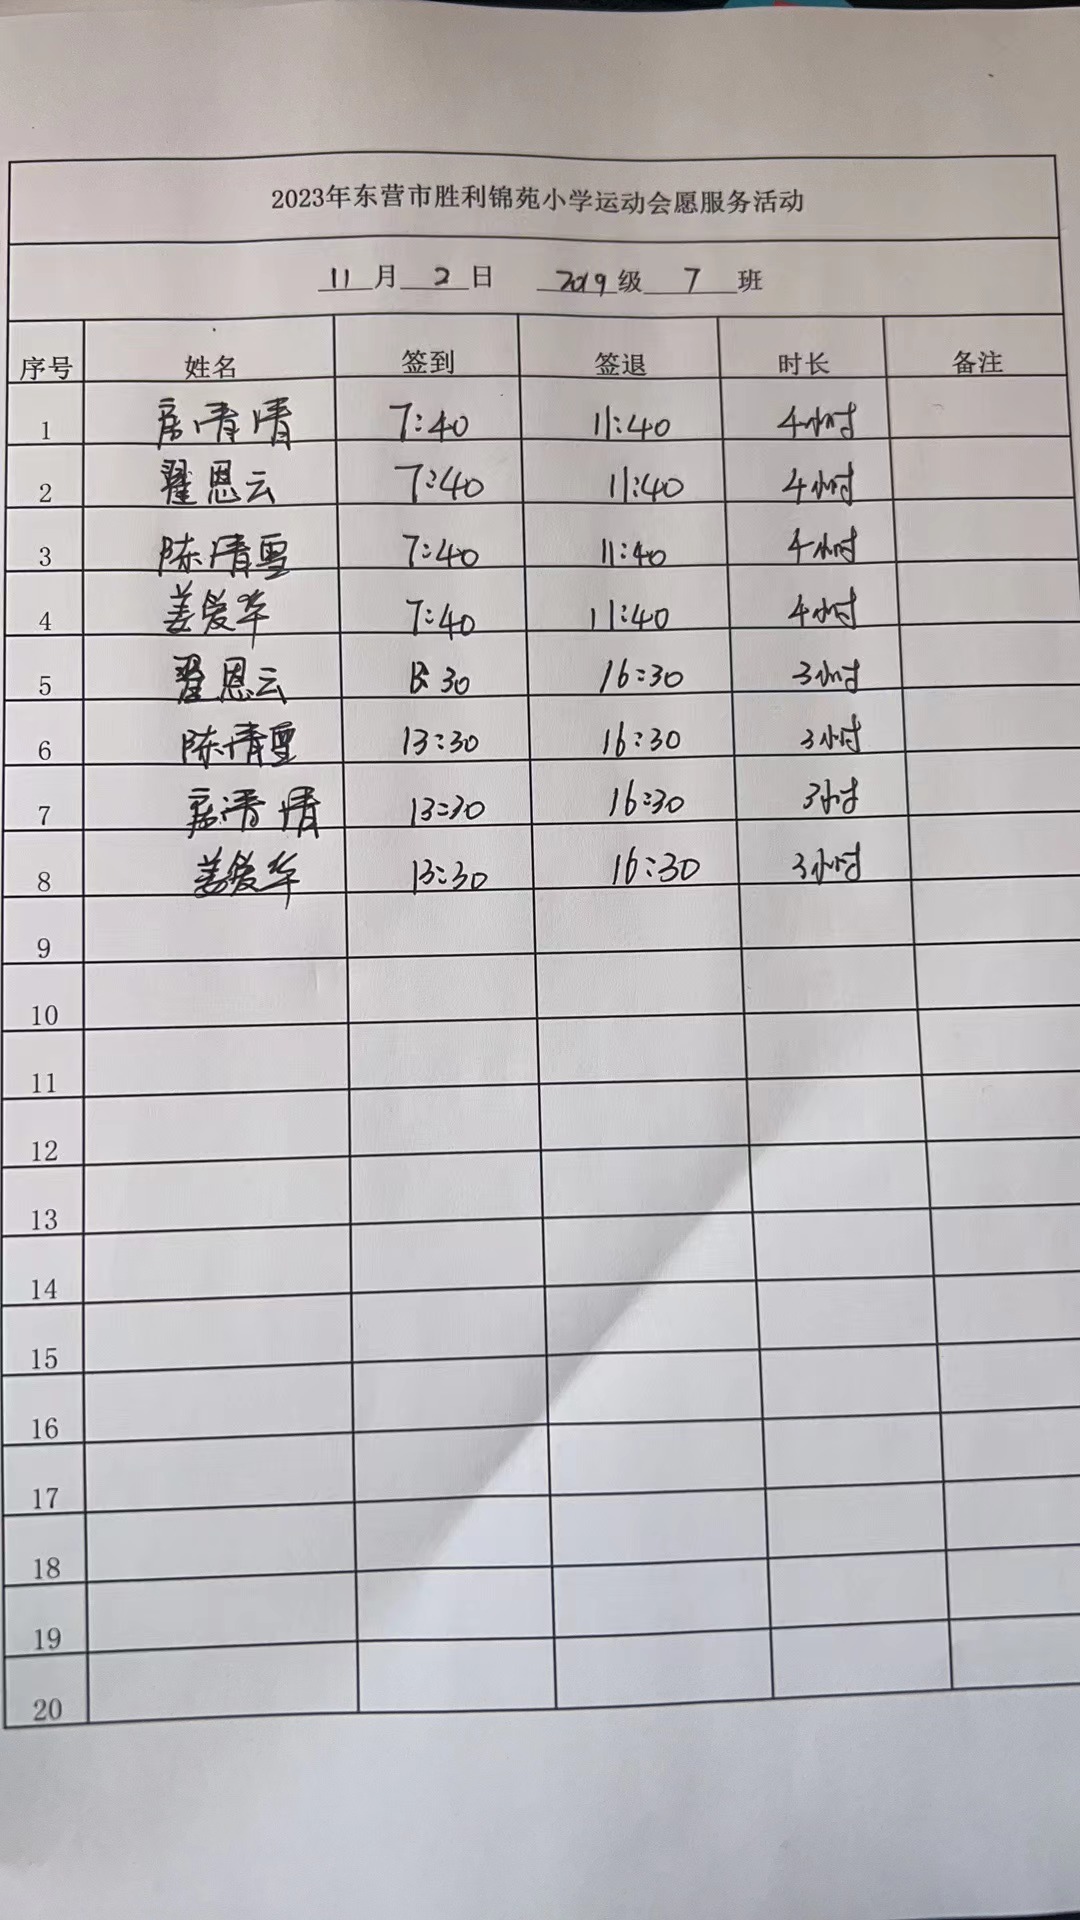 2023年东营市胜利锦苑小学运动会愿服务活动
11月2日 2019级7班
序号 姓名 签到 签退 时长 备注
1 房清清 7:40 11:40 4小时
2 翟恩云 7:40 11:40 4小时
3 陈清雪 7:40 11:40 4小时
4 姜爱华 7:40 11:40 4小时
5 翟恩云 13:30 16:30 3小时
6 陈清雪 13:30 16:30 3小时
7 房清清 13:30 16:30 3小时
8 姜爱华 13:30 16:30 3小时
9
10
11
12
13
14
15
16
17
18
19
20